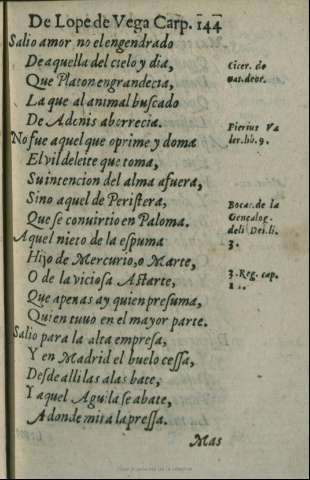 De Lope de Vega Carp. 144
Salio amor no el engendrado
De aquella del cielo y dia,
Que Platon engrandecia,
La que al animal buscado
De Adonis aborrecia.
No fue aquel que oprime y doma
El vil deleite que toma,
Su intencion del alma afuera,
Sino aquel de Peristera,
Que se convirtio en Paloma.
Aquel nieto de la espuma
Hijo de Mercurio, o Marte,
O de la viciosa Astarte,
Que apenas ay quien presuma,
Quien tuuo en el mayor parte.
Salio para la alta empresa,
Y en Madrid el buelo cessa,
Desde alli las alas bate,
Y aquel Aguila se abate,
A donde mira la pressa.
Mas
Cicer. de
nat. deor.
Pierius Va
ler. lib. 9.
Bocac. de la
Genealog.
deli Dei. li.
3.
3. Reg. cap.